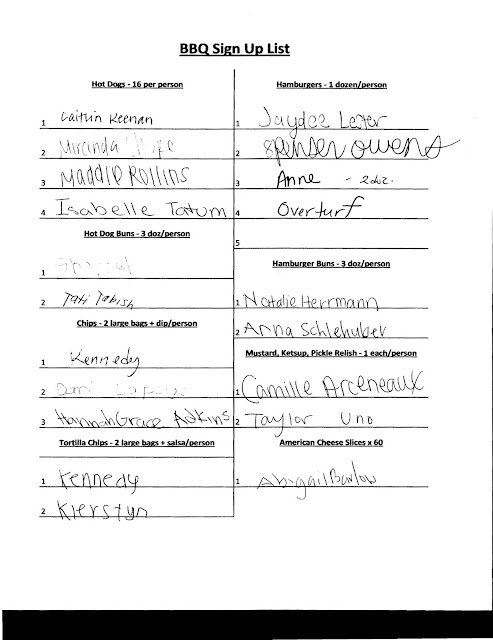 BBQ Sign Up List
Hot Dogs - 16 per person
1 Caitlin Keenan
2 Miranda
3 Maddie Rollins
4 Isabelle Tatum
Hot Dog Buns - 3 doz/person
1
2 Tati Tabish
Chips - 2 large bags + dip/person
1 Kennedy
2
3 HannahGrace Adkins
Tortilla Chips - 2 large bags + salsa/person
1 Kennedy
2 Kierstyn
Hamburgers - 1 dozen/person
1 Jaydee Leter
2 Spenser Owens
3 Anne - 2doz.
4 Overturf
5
Hamburger Buns - 3 doz/person
1 Natalie Herrmann
2 Anna Schlehuber
Mustard, Ketsup, Pickle Relish - 1 each/person
1 Camille Arceneaux
2 Taylor Uno
American Cheese Slices x 60
1 Abigail Barlow